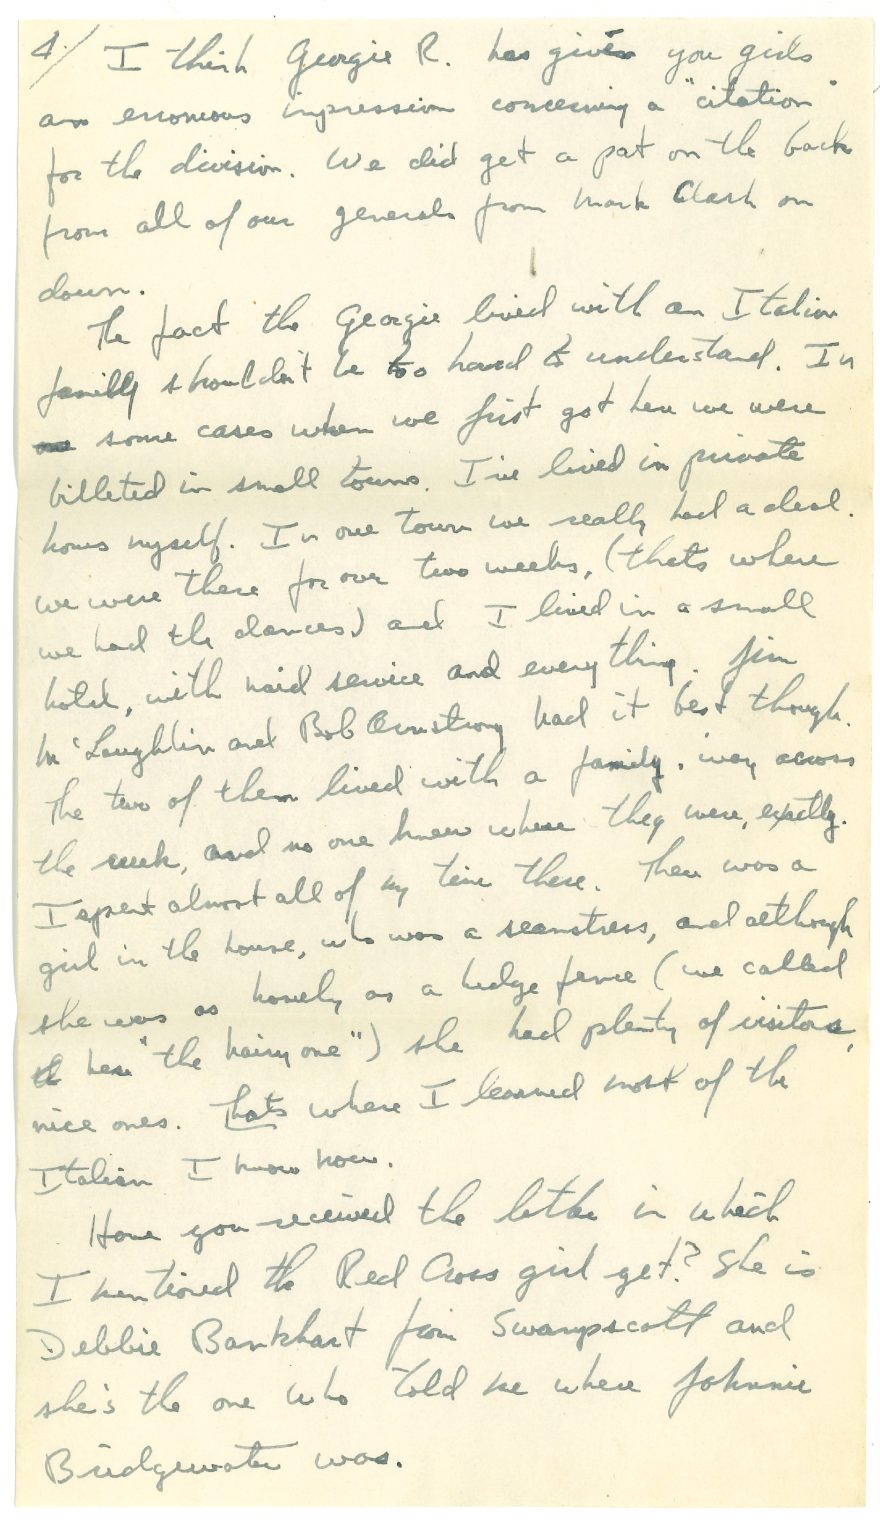 4./ I think Georgie R. has given you girls
an erroneous impression concerning a "citation"
for the division. We did get a pat on the back
from all of our generals from Mark Clark on
down.
The fact the Georgie lived with an Italian
family shouldn't be too hard to understand. In
some cases when we first got here we were
billeted in small towns. I've lived in private
homes myself. In one town we really had a deal.
we were there for over two weeks, (thats where
we had the dances) and I lived in a small
hotel, with maid service and everything. Jim
Mc'Laughlin and Bob Armstrong had it best though.
The two of them lived with a family, way across
the creek, and no one knew where they were, exactly.
I spent almost all of my time there. There was a
girl in the house, who was a seamstress, and although
she was as homely as a hedge fence (we called
her "the hairy one") she had plenty of visitors,
nice ones. Thats where I learned most of the
Italian I know now.
Have you received the letter in which
I mentioned the Red Cross girl yet? She is
Debbie Bankhart from Swampscott and
she's the one who told me where Johnnie
Bridgewater was.